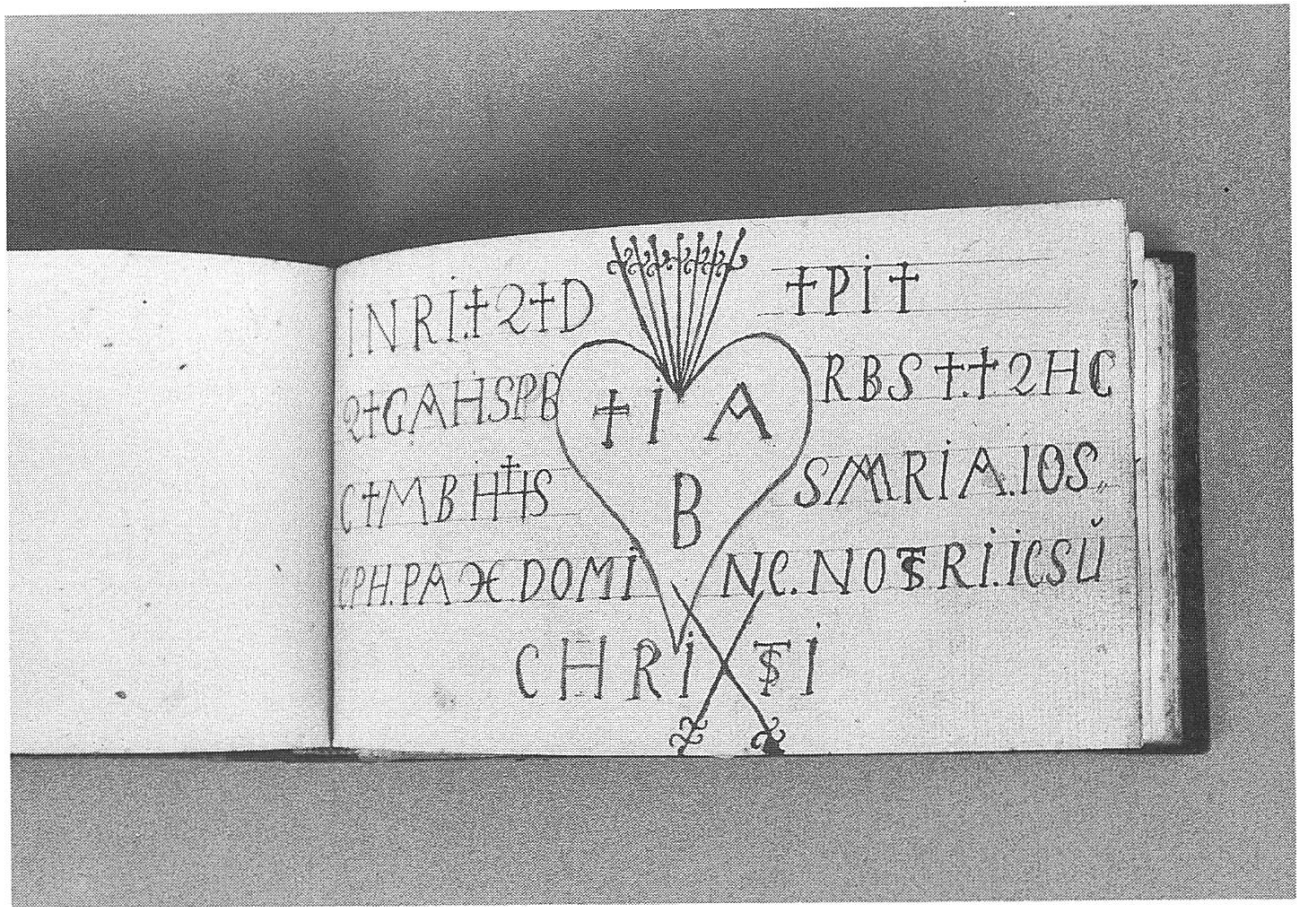 İNRİ.†2†D †Pİ†
2†GAHSPB †İ A RBS†.†2HC
C†MBH†HS B SMRİA.IOS„
CPH.PAX DOMİ NC.NOSTRİ.İCSŬ
CHRİ STİ